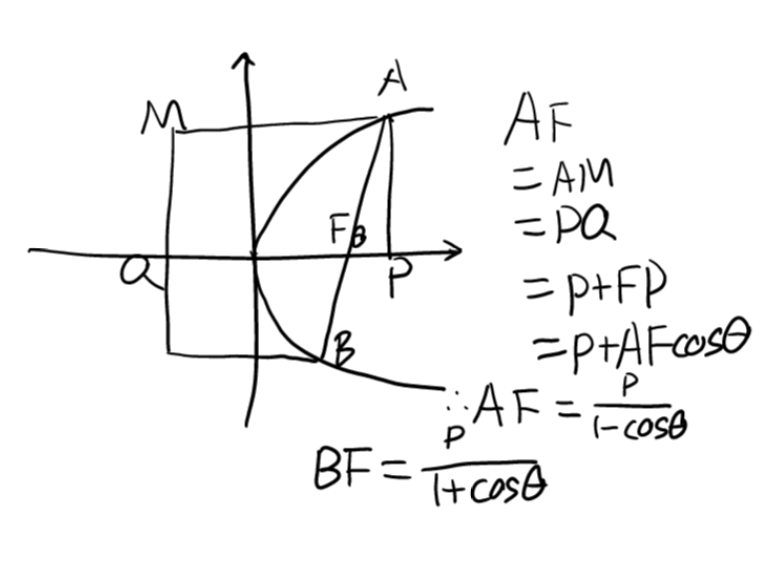 A
M
F θ
Q
P
B
AF
=AM
=PQ
=p+FP
=p+AFcosθ
∴AF=p/(1-cosθ)
BF=p/(1+cosθ)